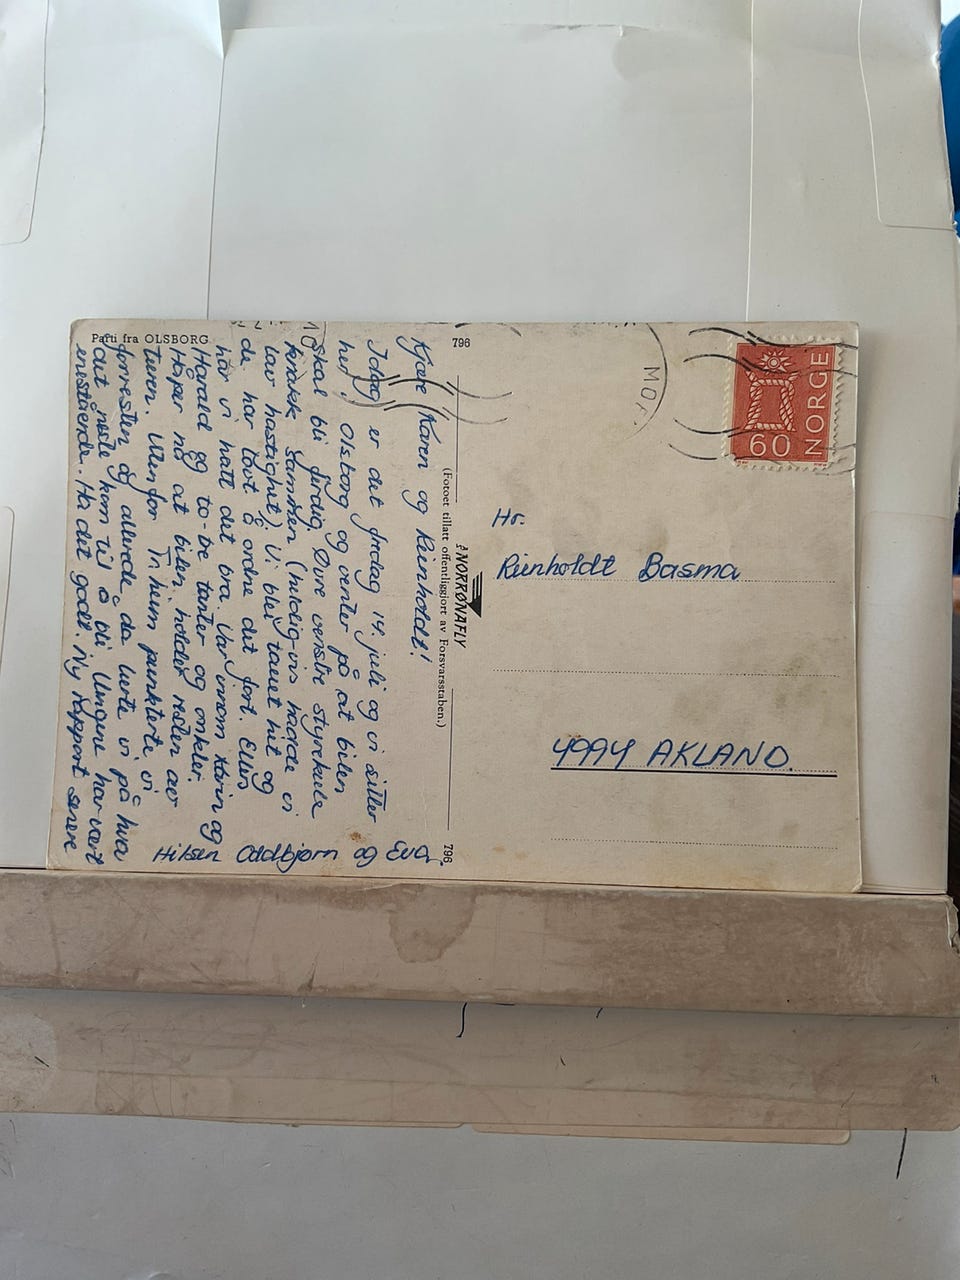 Parti fra OLSBORG
796
Kjære Karen og Reinholdt!
Idag er det fredag 14. juli og vi sitter
her i Olsborg og venter på at bilen
skal bli ferdig. Øvre venstre styrekule
knakk sammen (heldig-vis hadde vi
lav hastighet). Vi ble tauet hit og
de har lovt å ordne det fort. Ellers
har vi hatt det bra. Var innom Karin og
Harald og to-be tanter og onkler.
Håper nå at bilen holder resten av
turen. Utenfor Tr.heim punkterte vi
forresten og allerede da lurte vi på hva
det neste kom til å bli. Ungene har vært
enestående. Ha det godt. Ny rapport senere
Hilsen Oddbjørn og Eva.
(Fotoet tillatt offentliggjort av Forsvarsstaben.)
NORRØNAFLY
796
NORGE
60
Hr.
Reinholdt Basma
4994 AKLAND.